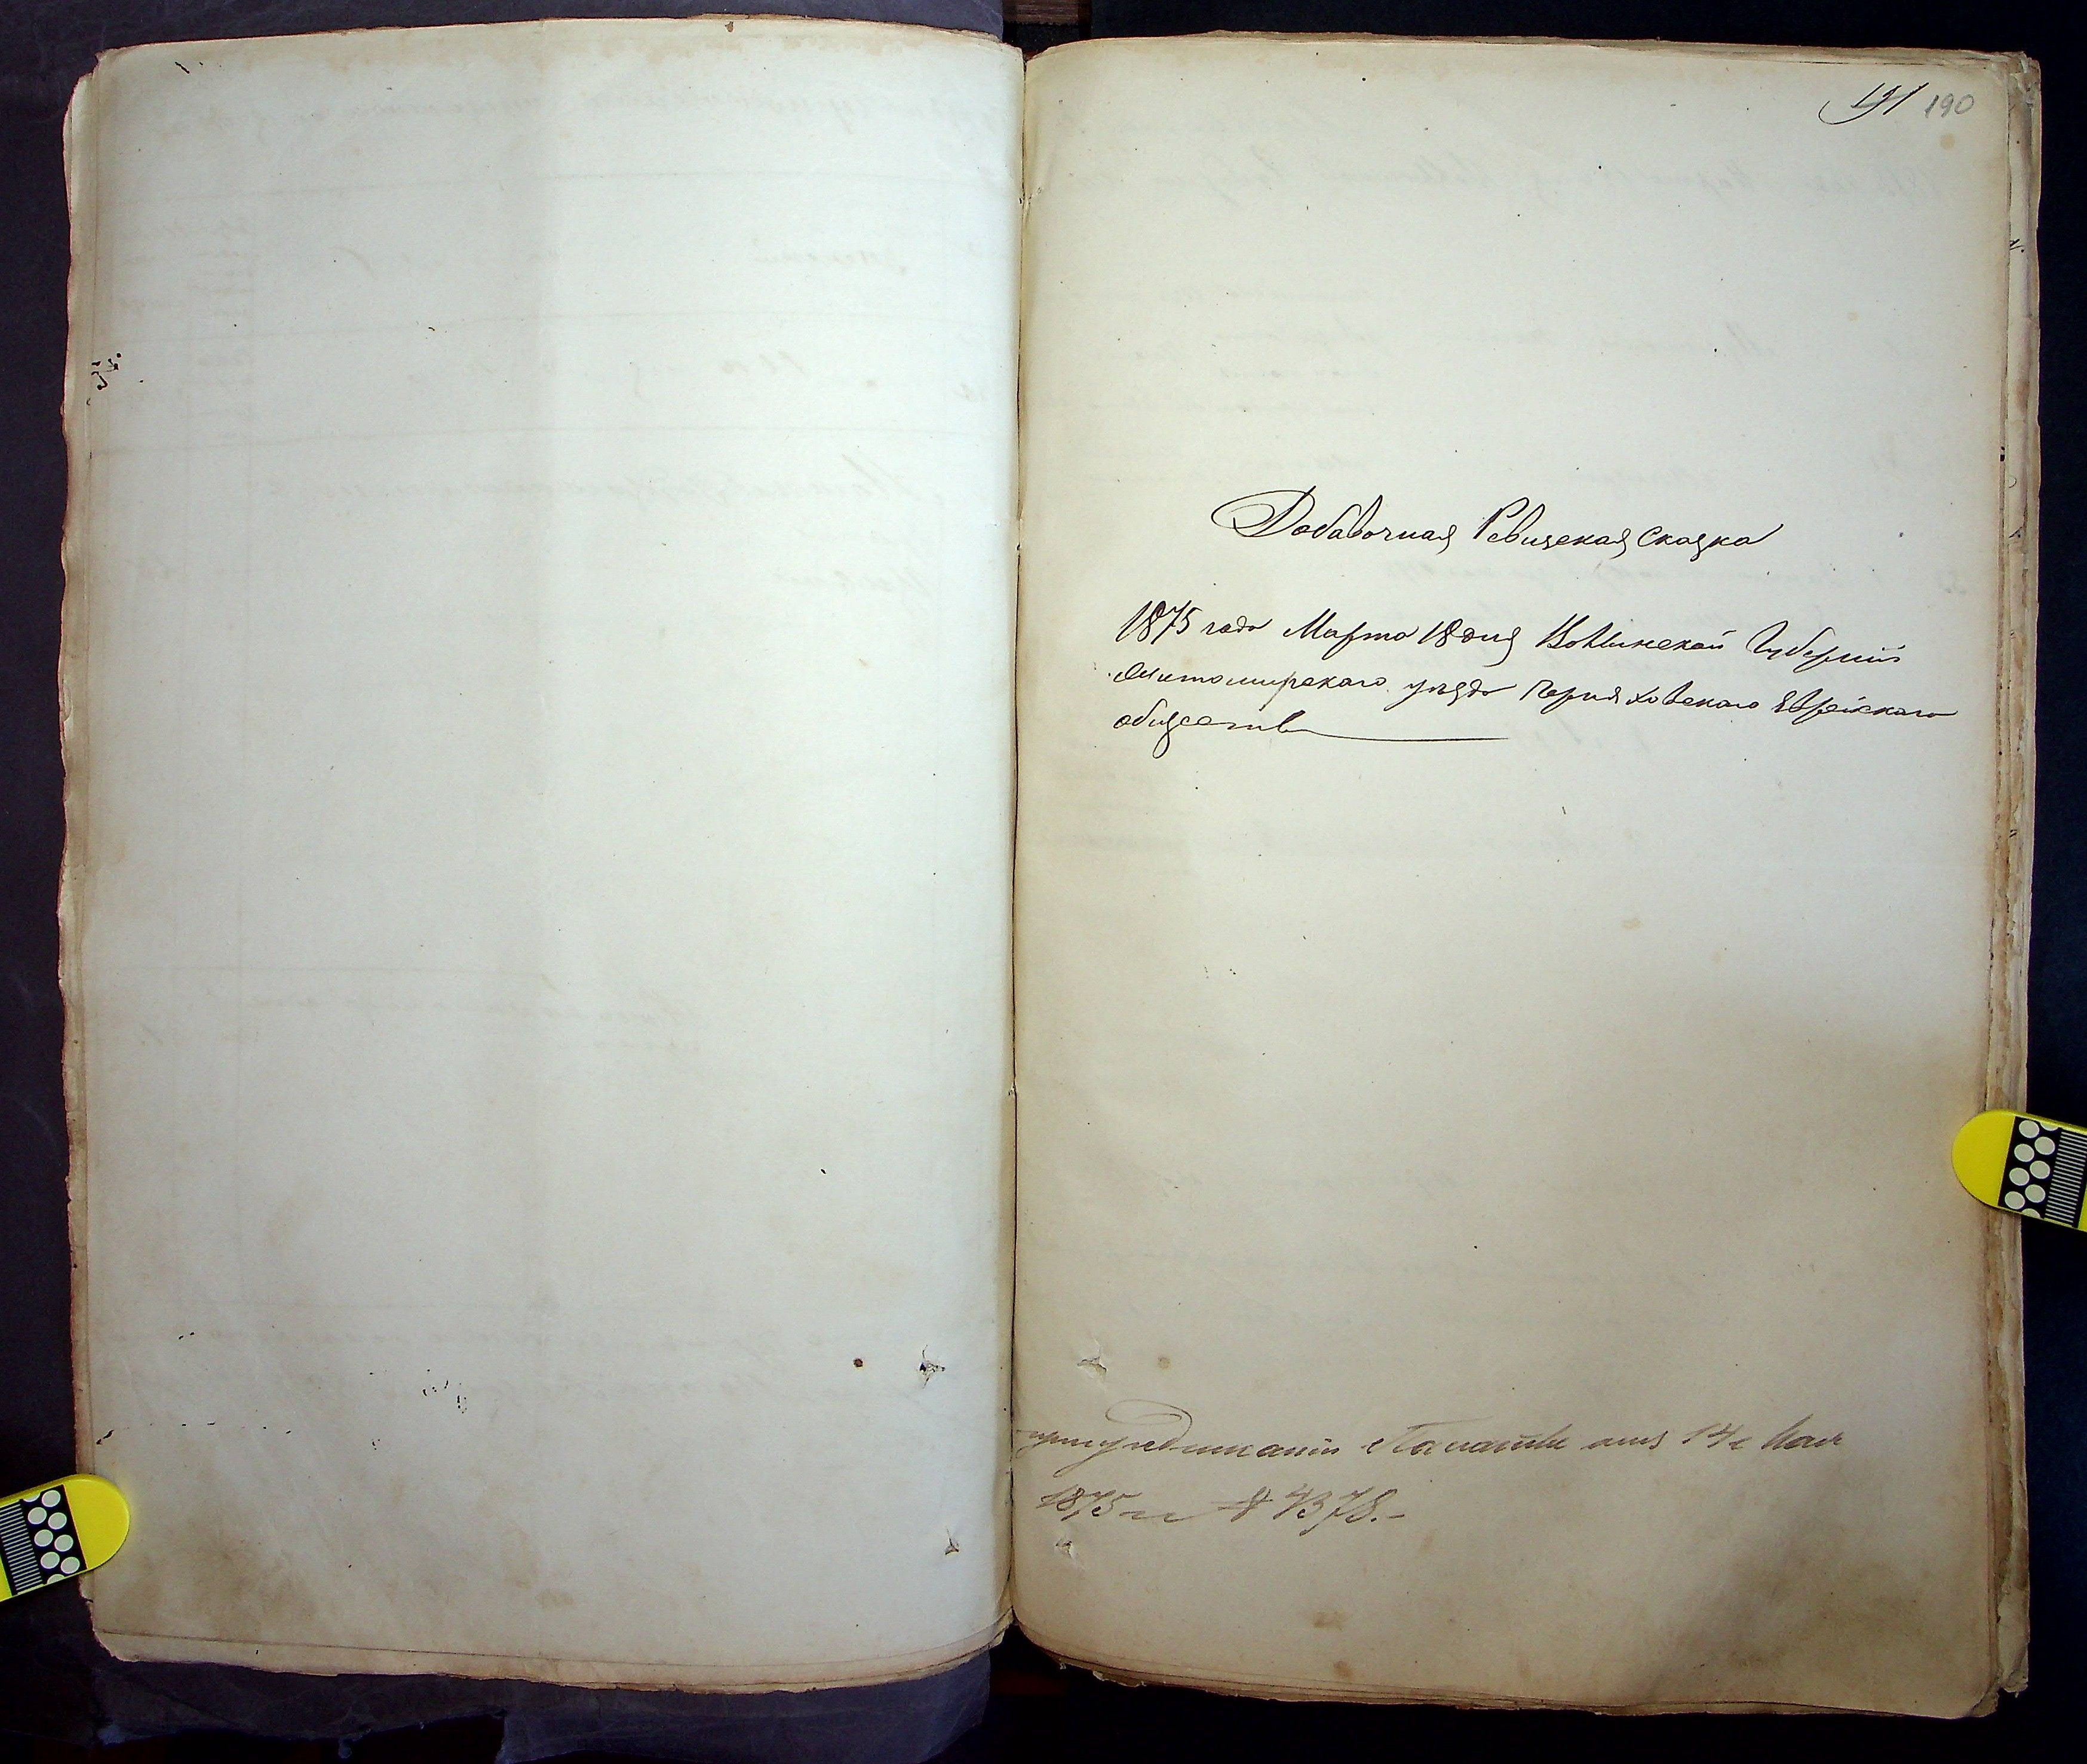 191 190
Добавочная Ревизская Сказка
1875 года Марта 18 дня Волынской Губерніи
Житомирскаго уѣзда Черняховскаго Еврейскаго
общества
при предписаніи Палаты отъ 14 Мая
1875 г. № 4378.-